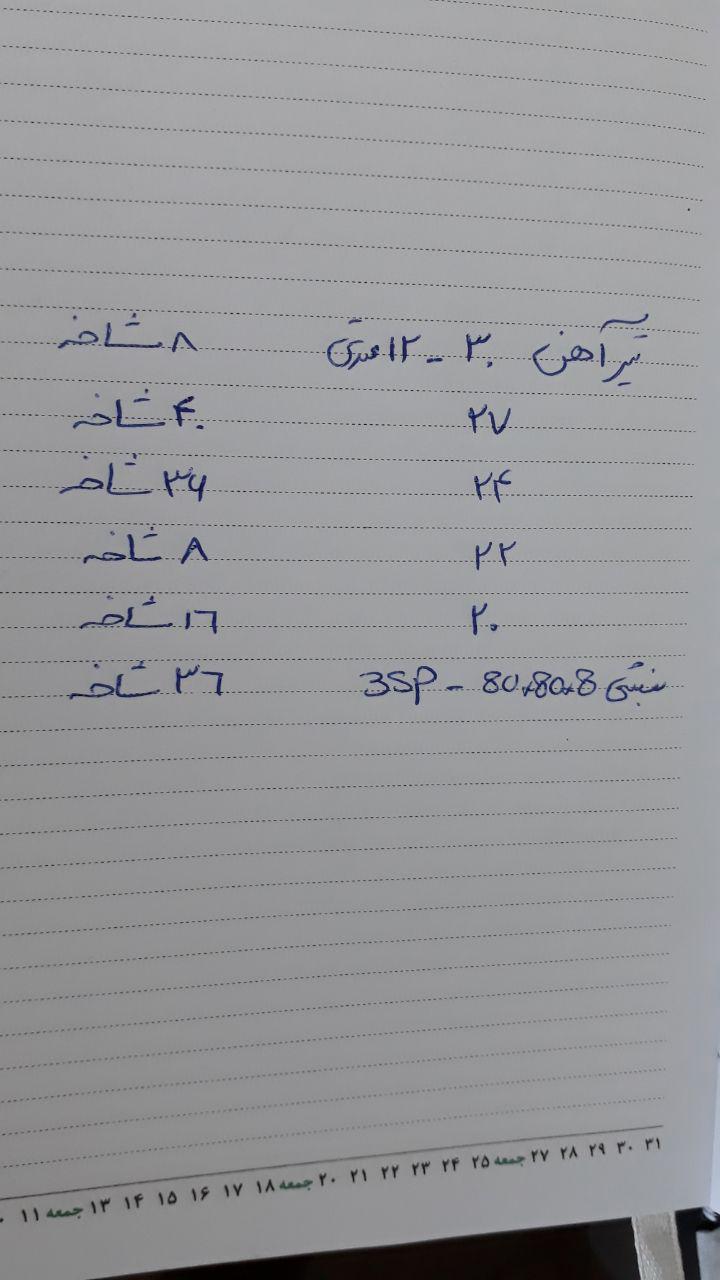 تیرآهن ۳۰ - ۱۲ متری ۸ شاخه
۲۷ ۴۰ شاخه
۲۴ ۳۶ شاخه
۲۲ ۸ شاخه
۲۰ ۱۶ شاخه
نبشی 80x80x8 - 3SP ۳۶ شاخه
۳۱ ۳۰ ۲۹ ۲۸ ۲۷ جمعه ۲۵ ۲۴ ۲۳ ۲۲ ۲۱ ۲۰ جمعه ۱۸ ۱۷ ۱۶ ۱۵ ۱۴ ۱۳ جمعه ۱۱